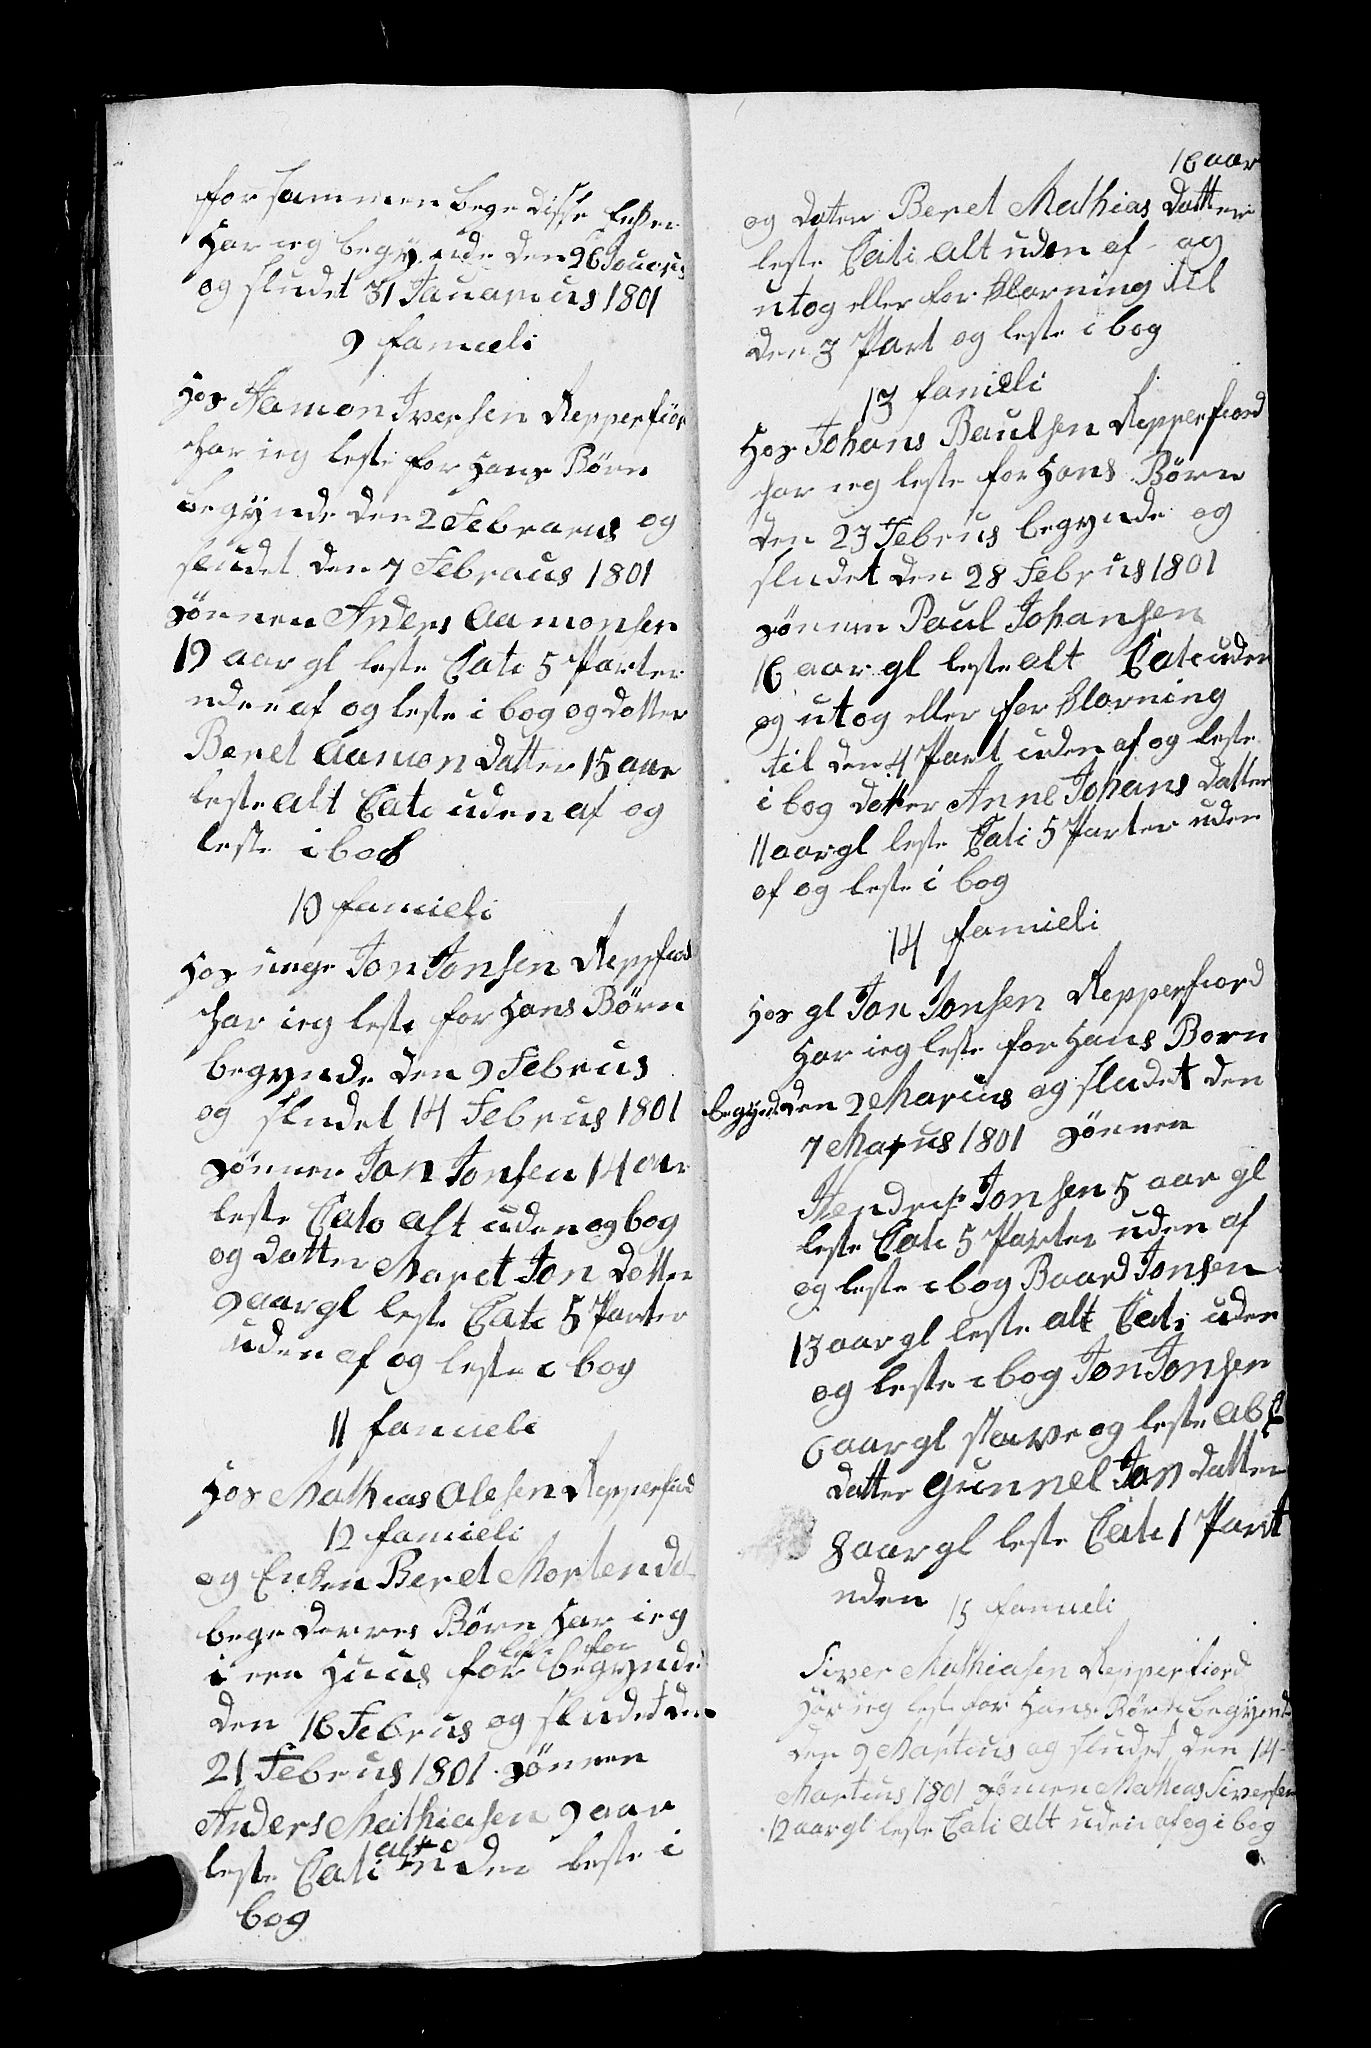 for sammen bege disse Enker
Har ieg begynde den 26 Jouarus
og sludet 31 Jauarius 1801
9 famieli
Hos Aamon Iversen Repperfior
har ieg leste for Hans Børn
begynde den 2 Febrarus og
sludet den 7 Febraus 1801
Sønnen Anders Aamonsen
19 aar gl leste Cate 5 Parter
uden af og leste i bog og dotter
Beret Aamon datter 15 aar
leste alt Cate uden af og
leste i bog
10 famieli
Hos unge Jon Jonsen Reppfiord
har ieg leste for Hans Børn
begynde den 9 Februs
og sludet 14 Februs 1801
Sønnen Jon Jonsen 14 aar
leste Cate alt uden og bog
og datter Maret Jon dotter
9 aar gl leste Cate 5 Parter
uden af og leste i bog
11 famieli
Hos Mathias Olesen Repperfiord
12 famieli
og Enken Beret Mortendt
bege derres Børn Har ieg
leste for
i een Huus for begynde
den 16 Februs og sludet den
21 Februs 1801 Sønnen
Anders Mathiasen 9 aar
leste Cati alt uden leste i
bog
16 aar
og dater Beret Mathias datter
leste Cati alt uden af og
utog eller for klarning til
den 3 Part og leste i bog
13 famieli
Hos Johans Paulsen Repperfiord
har ieg leste for Hans Børn
den 23 Februs begynde og
sludet den 28 Februs 1801
Sønnen Paul Johansen
16 aar gl leste alt Cate uden
og utog eller for klarning
til den 4 Part uden af og leste
i bog dotter Anne Johans datter
11 aar gl leste Cati 5 Parter uden
af og leste i bog
14 famieli
Hos gl Jon Jonsen Repperfiord
Har ieg leste for Hans Born
begynde den 2 Marcus og sludet den
7 Marus 1801 Sønnen
Hendrik Jonsen 5 aar gl
leste Cate 5 Parter uden af
og leste i bog Baard Jonsen
13 aar gl leste alt Cati uden
og leste i bog Jon Jonsen
6 aar gl stave og leste ab C
datter Gunnel Jon datter
8 aar gl leste Cati 1 Part
uden
15 famieli
Siver Mathiasen Repperfiord
Har ieg leste for Hans Børn begynde
den 9 Martius og sludet den 14
Martius 1801 Sønnen Mathias Siversen
12 aar gl leste Cati alt uden af og i bog